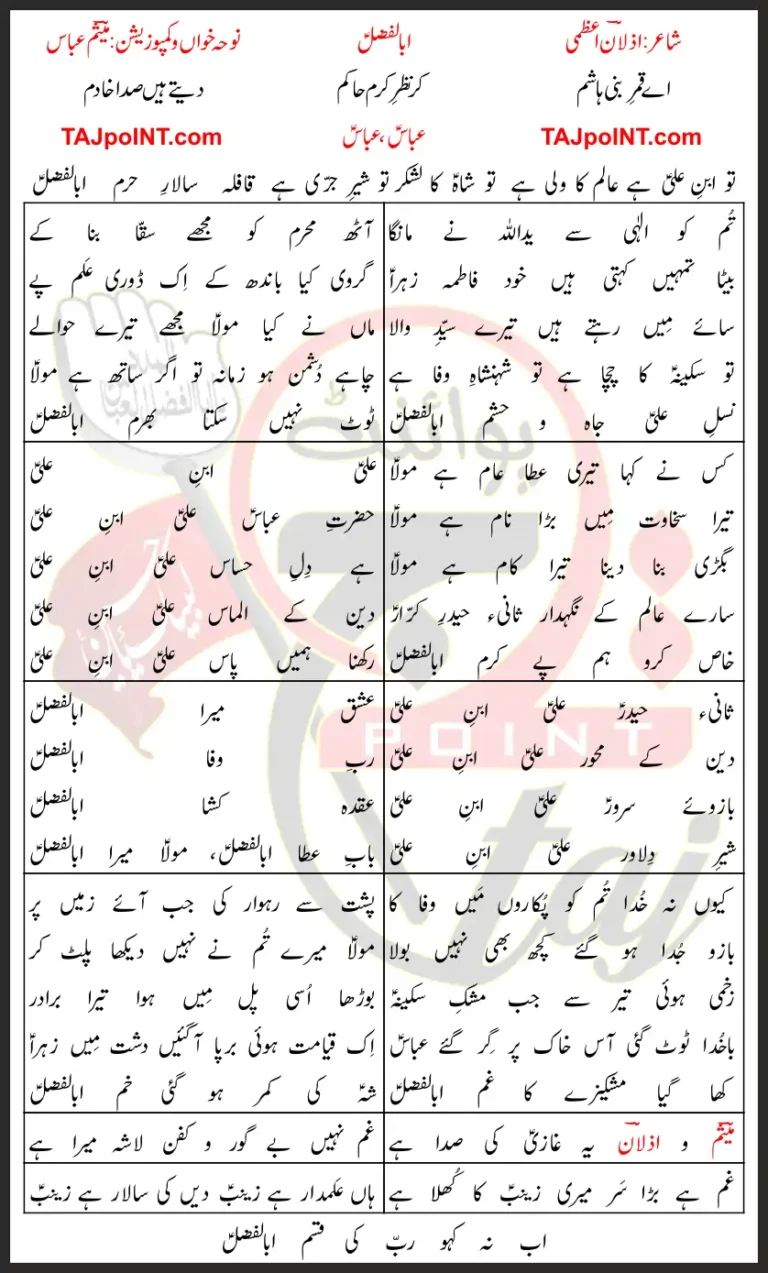 شاعر: اذلان اعظمی
ابالفضلؑ
نوحہ خواں و کمپوزیشن: میثم عباس
اے قمرِ بنی ہاشم
کر نظرِ کرم حاکم
دیتے ہیں صدا خادم
TAJpoINT.com
عباسؑ، عباسؑ
TAJpoINT.com
تو ابنِ علیؑ ہے عالم کا ولی ہے تو شاہؑ کا لشکر تو شیرِ جرّی ہے قافلہ سالارِ حرم ابالفضلؑ
تُم کو الٰہی سے یداللہ نے مانگا
بیٹا تمہیں کہتی ہیں خود فاطمہ زہراؑ
سائے مِیں رہتے ہیں تیرے سیّدِ والا
تو سکینہؑ کا چچا ہے تو شہنشاہِ وفا ہے
نسلِ علیؑ جاہ و حشم ابالفضلؑ
آٹھ محرم کو مجھے سقّا بنا کے
گروی کیا باندھ کے اِک ڈوری عَلم پے
ماں نے کیا مولاؑ مجھے تیرے حوالے
چاہے دُشمن ہو زمانہ تو اگر ساتھ ہے مولاؑ
ٹوٹ نہیں سَکتا بھرم ابالفضلؑ
کس نے کہا تیری عطا عام ہے مولاؑ
تیرا سخاوت مِیں بڑا نام ہے مولاؑ
بگڑی بنا دینا تیرا کام ہے مولاؑ
سارے عالم کے نگہدار ثانیٔ حیدرِ کرّارؑ
خاص کرو ہم پے کرم ابالفضلؑ
علیؑ ابنِ علیؑ
حضرتِ عباسؑ علیؑ ابنِ علیؑ
ہے دِلِ حساس علیؑ ابنِ علیؑ
دین کے الماس علیؑ ابنِ علیؑ
رکھنا ہمیں پاس علیؑ ابنِ علیؑ
ثانیٔ حیدرؑ علیؑ ابنِ علیؑ
دین کے محور علیؑ ابنِ علیؑ
بازوئے سرورؑ علیؑ ابنِ علیؑ
شیرِ دِلاور علیؑ ابنِ علیؑ
عشق میرا ابالفضلؑ
ربِ وفا ابالفضلؑ
عقدہ کشا ابالفضلؑ
بابِ عطا ابالفضلؑ، مولاؑ میرا ابالفضلؑ
کیوں نہ خُدا تُم کو پُکاروں مَیں وفا کا
بازو جُدا ہو گئے کچھ بھی نہیں بولا
زخمی ہوئی تیر سے جب مشکِ سکینہؑ
باخُدا ٹوٹ گئی آس خاک پر گِر گئے عباسؑ
کھا گیا مشکیزے کا غم ابالفضلؑ
پشت سے رہوار کی جب آئے زمیں پر
مولاؑ میرے تُم نے نہیں دیکھا پلٹ کر
بوڑھا اُسی پل مِیں ہوا تیرا برادر
اِک قیامت ہوئی برپا آ گئیں دشت مِیں زہراؑ
شہؑ کی کمر ہو گئی خم ابالفضلؑ
میثمؔ و اذلانؔ یہ غازیؑ کی صدا ہے
غم نہیں بے گور و کفن لاشہ میرا ہے
غم ہے بڑا سَر میری زینبؑ کا کُھلا ہے
ہاں عَلمدار ہے زینبؑ دیں کی سالار ہے زینبؑ
اب نہ کہو ربّ کی قسم ابالفضلؑ
پوائنٹ
تاج
POINT
taj